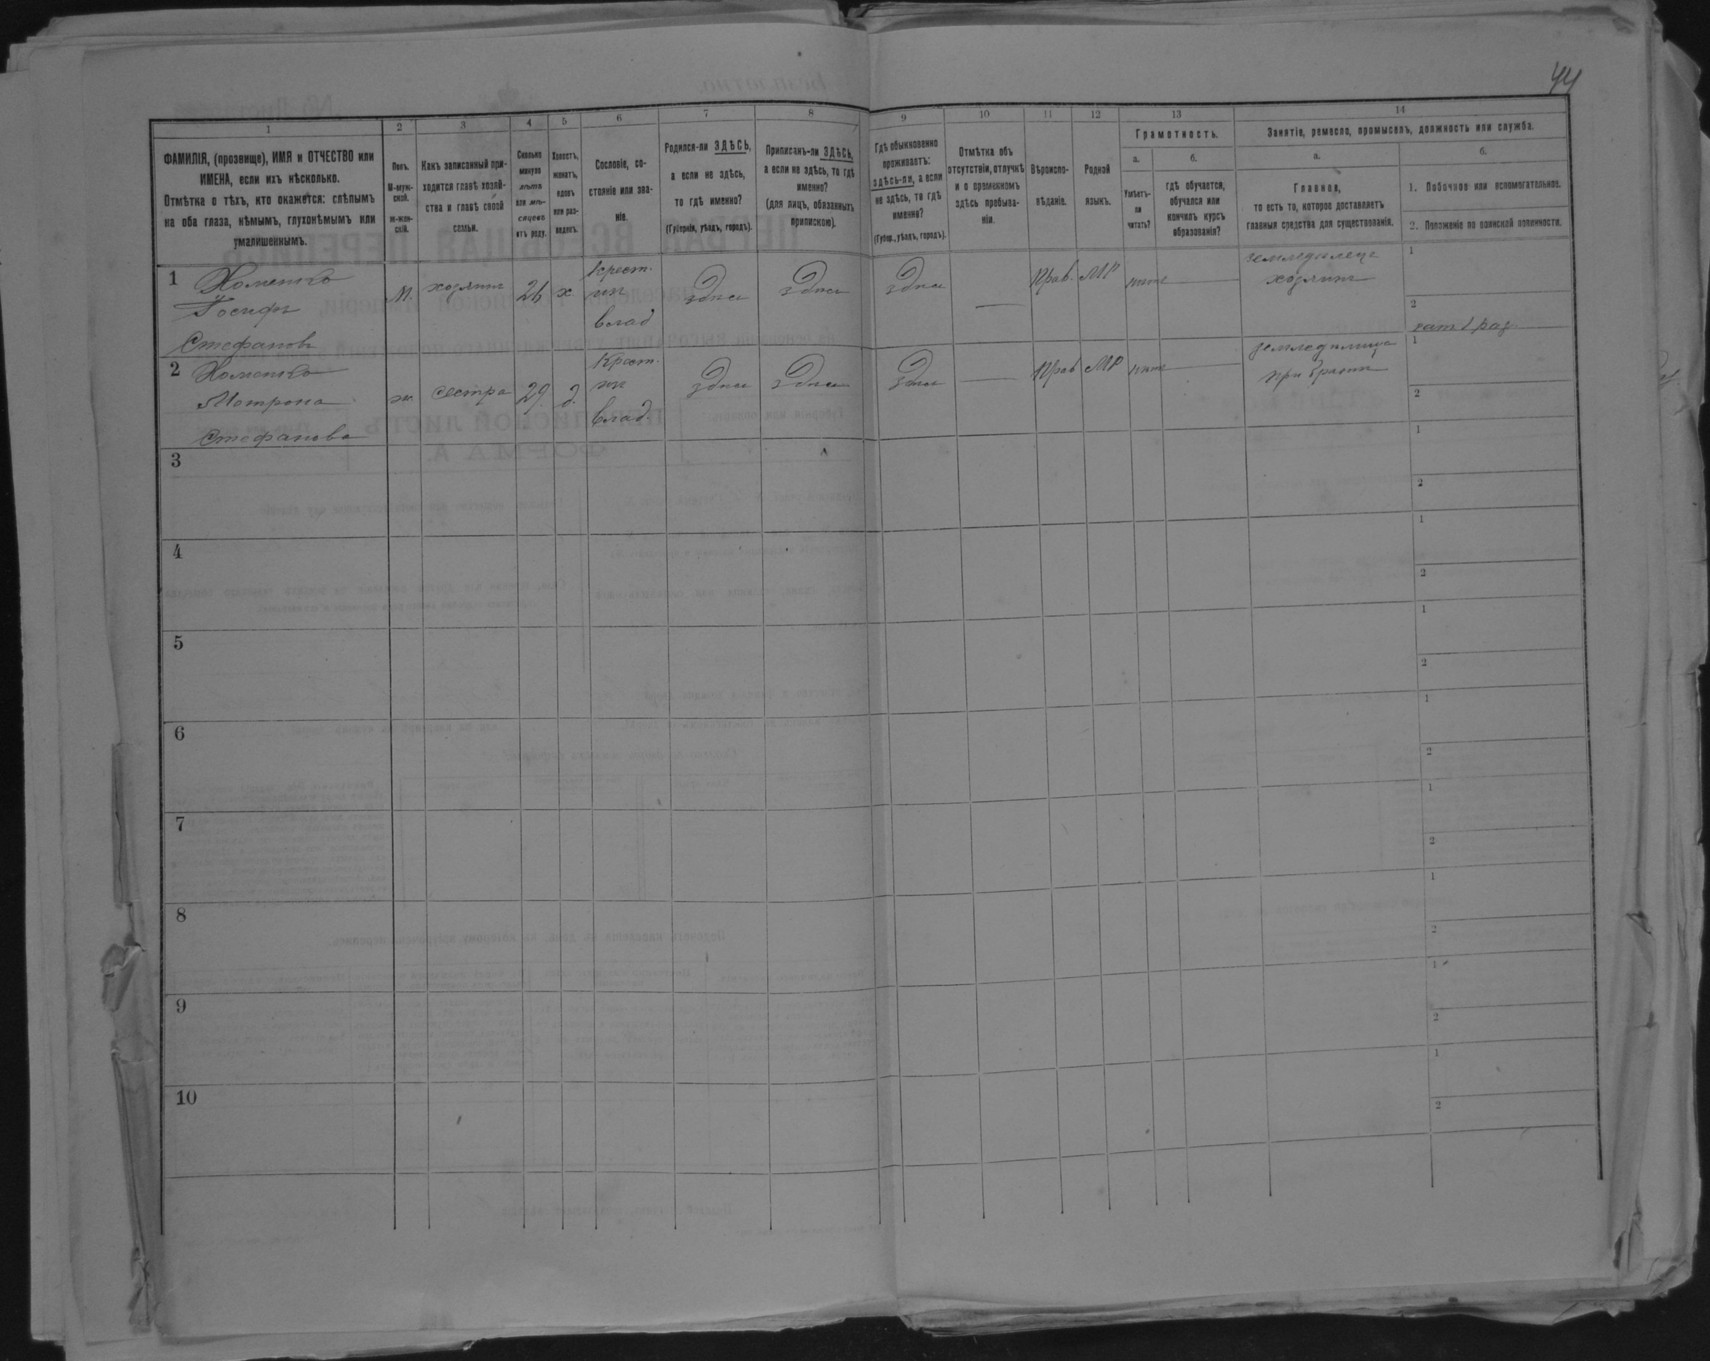 44
1
2
3
4
5
6
7
8
9
10
11
12
13
14
ФАМИЛІЯ, (прозвище), ИМЯ и ОТЧЕСТВО или
ИМЕНА, если ихъ нѣсколько.
Отмѣтка о тѣхъ, кто окажется: слѣпымъ
на оба глаза, нѣмымъ, глухонѣмымъ или
умалишеннымъ.
Полъ.
М-муж-
ской.
ж-жен-
скій.
Какъ записанный при-
ходится главѣ хозяй-
ства и главѣ своей
семьи.
Сколько
минуло
лѣтъ
или мѣ-
сяцевъ
отъ роду.
Холостъ,
женатъ,
вдовъ
или раз-
веденъ.
Сословіе, со-
стояніе или зва-
ніе.
Родился-ли ЗДѢСЬ,
а если не здѣсь,
то гдѣ именно?
(Губернія, уѣздъ, городъ).
Приписанъ-ли ЗДѢСЬ,
а если не здѣсь, то гдѣ
именно?
(для лицъ, обязанныхъ
припискою).
Гдѣ обыкновенно
проживаетъ:
здѣсь-ли, а если
не здѣсь, то гдѣ
именно?
(Губер., уѣздъ, городъ).
Отмѣтка объ
отсутствіи, отлучкѣ
и о временномъ
здѣсь пребыва-
ніи.
Вѣроиспо-
вѣданіе.
Родной
языкъ.
Грамотность.
а.
Умѣетъ-
ли
читать?
б.
гдѣ обучается,
обучался или
кончилъ курсъ
образованія?
Занятіе, ремесло, промыселъ, должность или служба.
а.
Главное,
то есть то, которое доставляетъ
главныя средства для существованія.
б.
1. Побочное или вспомогательное.
2. Положеніе по воинской повинности.
1 Хоменко
Іосифъ
Стефановъ
м.
хозяинъ
26
х.
Крест.
изъ
влад
здѣсь
здѣсь
здѣсь
—
Прав.
МР
нѣтъ
земледѣлецъ
хозяинъ
1
2
рат 1 раз.
2 Хоменко
Мотрона
Стефанова
ж.
сестра
29
д.
Крест.
изъ
влад.
здѣсь
здѣсь
здѣсь
—
Прав
МР
нѣтъ
при братѣ
1
2
3
1
2
4
1
2
5
1
2
6
1
2
7
1
2
8
1
2
9
1
2
10
1
2